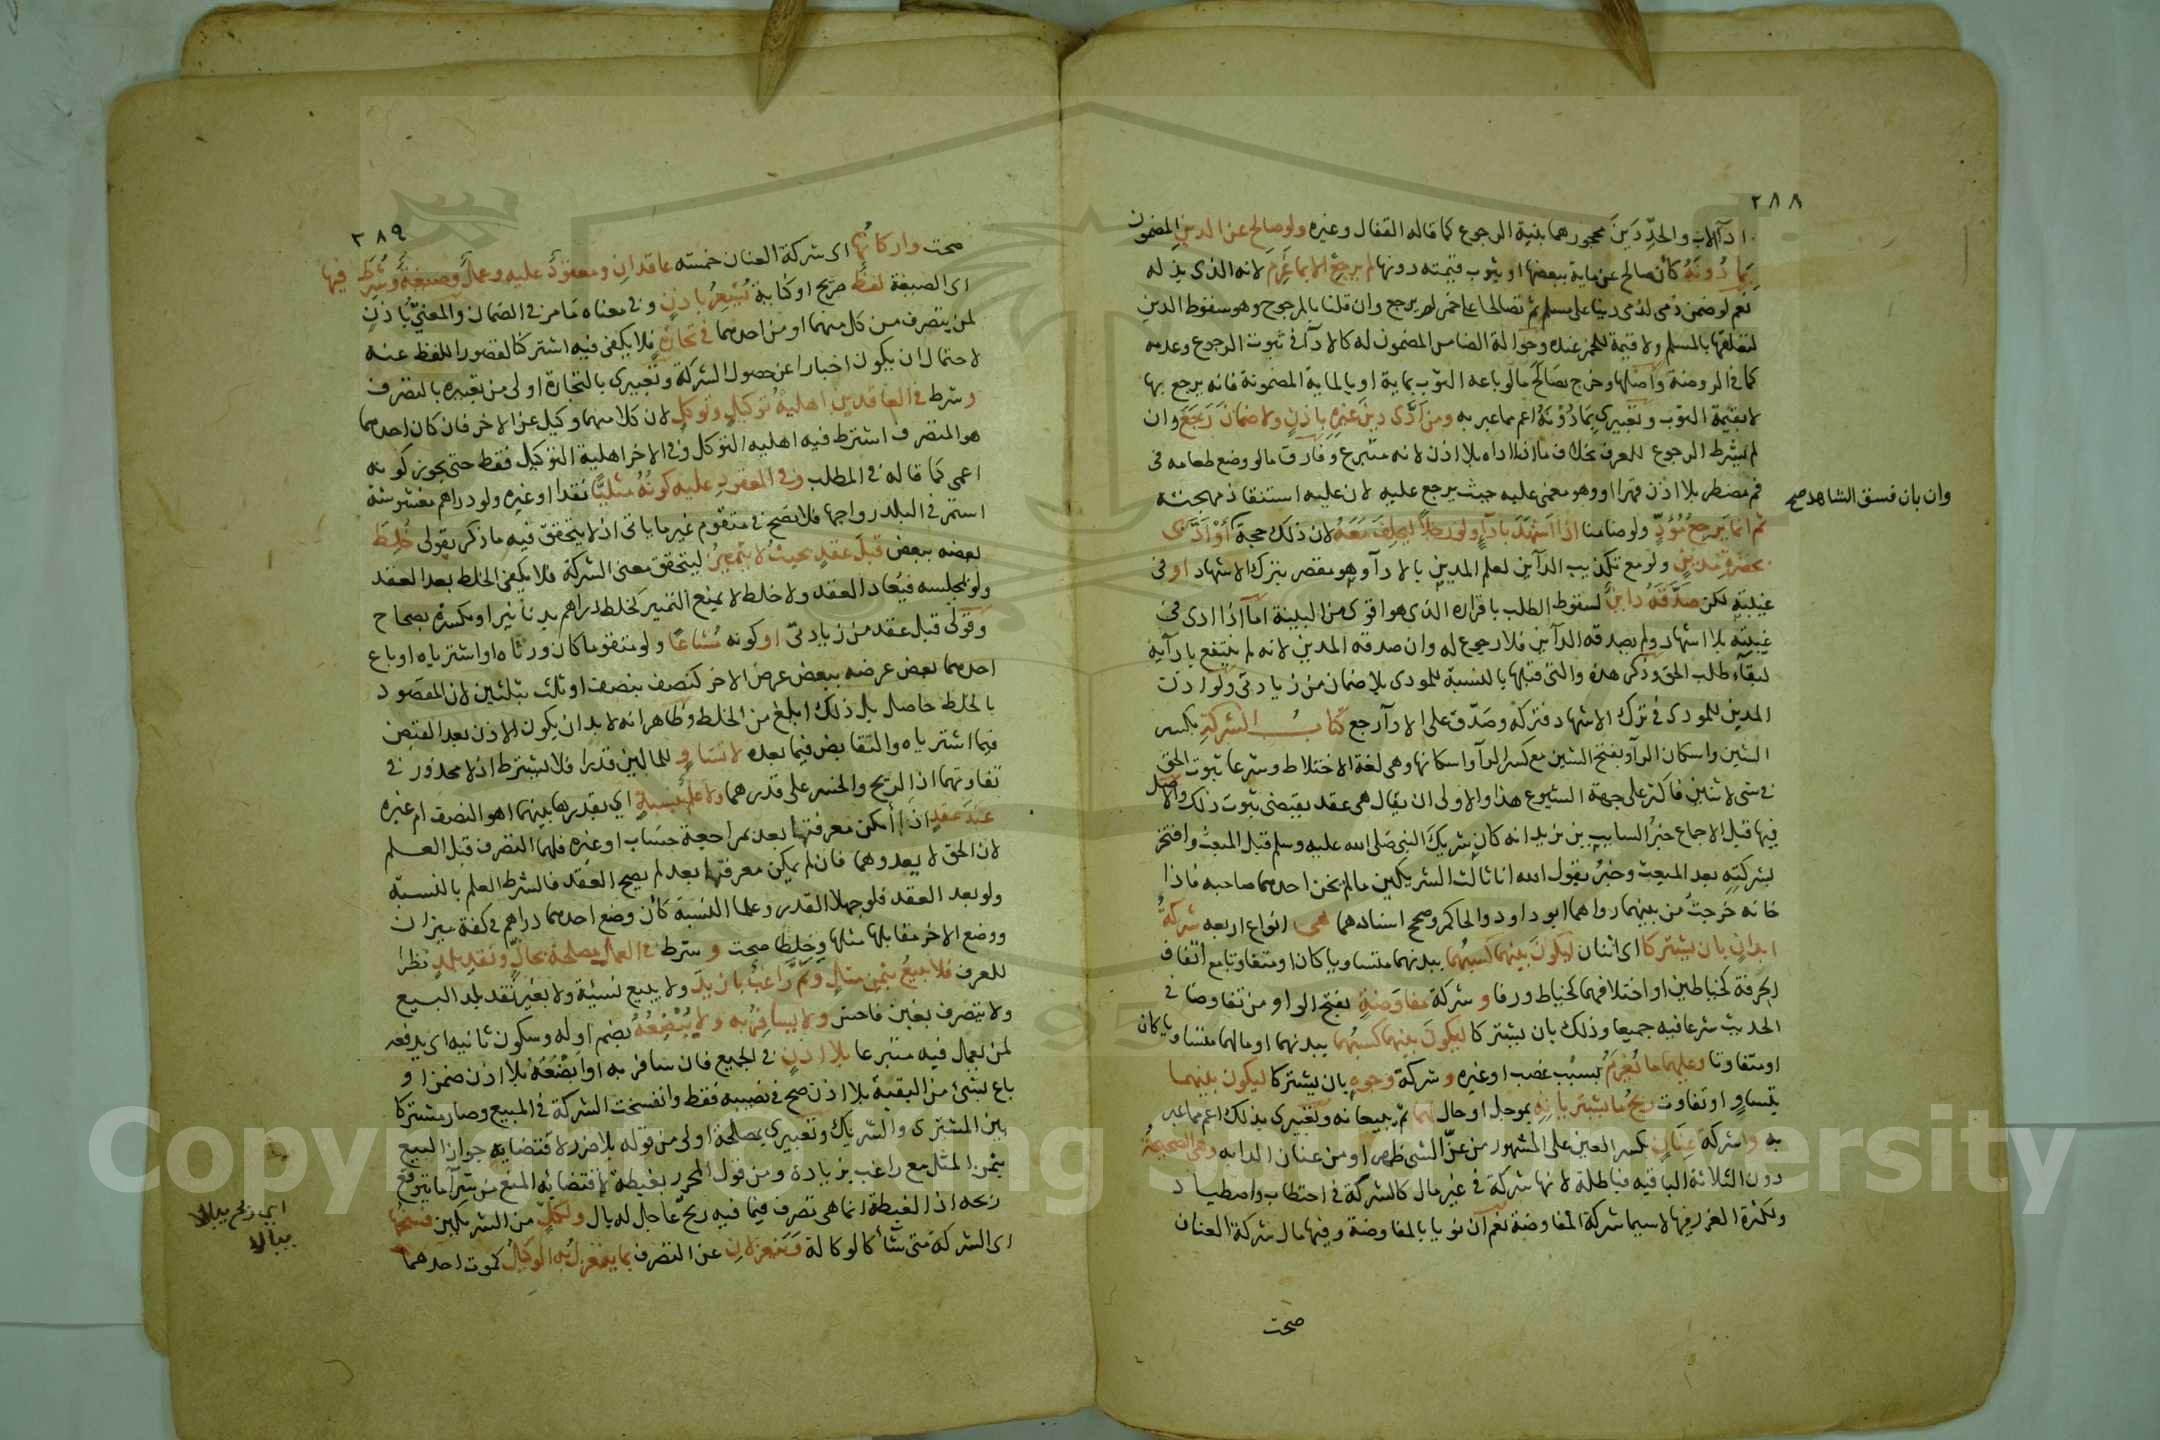 ٢٨٨
اداء الاب والجد دين محجورهما بنية الرجوع كما قاله القفال وغيره ولو صالح عن الدين المضمون
بما دونه كأن صالح عن ماية ببعضها او بثوب قيمته دونها لم يرجع الا بما غرم لانه الذي بذله
نعم لو ضمن ذمي لذمي دينا على مسلم ثم تصالحا على خمر لم يرجع وان قلنا بالمرجوح وهو سقوط الدين
لتعلقها بالمسلم ولا قيمة للخمر عنده وحوالة الضامن المضمون له كالاداء في ثبوت الرجوع وعدمه
كما في الروضة واصلها وخرج بصالح ما لو باعه الثوب بماية او بالماية المضمونة فانه يرجع بها
لا بقيمة الثوب وتعبيري بما دونه اعم مما عبر به ومن ادى دين غيره باذن ولا ضمان رجع وان
لم يشرط الرجوع للعرف بخلاف ما اذا اداه بلا اذن لانه متبرع وفارق ما لو وضع طعامه في
فم مضطر بلا اذن قهرا او وهو مغمى عليه حيث يرجع عليه لان عليه استنقاذ مهجته
وان بان فسق الشاهد صح
ثم انما يرجع مؤد ولو ضامنا اذا اشهد باداء ولو رجلا ليحلف معه لان ذلك حجة او ادى
بحضرة مدين ولو مع تكذيب الدآين لعلم المدين بالادآ وهو مقصر بترك الاشهاد او في
غيبته لكن صدقه داين لسقوط الطلب باقراره الذي هو اقوى من البينة اما اذا ادى في
غيبته بلا اشهاد ولم يصدقه الدآين فلا رجوع له وان صدقه المدين لانه لم ينتفع بادآيه
لبقآء طلب الحق وذكر هذه والتي قبلها بالنسبة للمودي بلا ضمان من زيادتي ولو اذن
المدين للمودي في ترك الاشهاد فتركه وصدق على الادآ رجع كتاب الشركة بكسر
الشين واسكان الرآ وبفتح الشين مع كسر الرآ واسكانها وهي لغة الاختلاط وشرعا ثبوت الحق
في شي لاثنين فاكثر على جهة الشيوع هذا والاولى ان يقال هي عقد يقتضي ثبوت ذلك والاصل
فيها قبل الاجماع خبر السايب بن يزيد انه كان شريك النبي صلى الله عليه وسلم قبل المبعث وافتخر
بشركته بعد المبعث وخبر يقول الله انا ثالث الشريكين ما لم يخن احدهما صاحبه فاذا
خانه خرجت من بينهما رواهما ابو داود والحاكم وصحح اسنادهما هي انواع اربعه شركة
ابدان بان يشتركا اي اثنان ليكون بينهما كسبهما ببدنهما متساويا كان او متفاوتا مع اتفاق
الحرفة كخياطين او اختلافهما كخياط ورفا و شركة مفاوضة بفتح الواو من تفاوضا في
الحديث شرعا فيه جميعا وذلك بان يشتركا ليكون بينهما كسبهما ببدنهما او مالهما متساويا كان
او متفاوتا وعليهما ما يغرم بسبب غصب او غيره و شركة وجوه بان يشتركا ليكون بينهما
بتساو او تفاوت ربح ما يشتريانه بموجل او حال لهما ثم يبيعانه وتعبيري بذلك اعم مما عبر
به وشركة عنان بكسر العين على المشهور من عن الشي ظهر او من عنان الدابه وهي الصحيحة
دون الثلاثة الباقيه فباطلة لانها شركة في غير مال كالشركة في احتطاب واصطياد
ولكثرة الغرر فيها لاسيما شركة المفاوضة نعم ان نويا بالمفاوضة وفيها مال شركة العنان
صحت
٢٨٩
صحت واركانها اي شركة العنان خمسه عاقدان ومعقود عليه وعمل وصيغة وشرط فيها
اي الصيغة لفظ صريح او كناية يشعر باذن وفي معناه ما مر في الضمان والمعنى باذن
لمن يتصرف من كل منهما او من احدهما في تجارة فلا يكفي فيه اشتركنا لقصور اللفظ عنه
لاحتمال ان يكون اخبارا عن حصول الشركة وتعبيري بالتجارة اولى من تعبيره بالتصرف
وشرط في العاقدين اهلية توكيل وتوكل لان كلا منهما وكيل عن الاخر فان كان احدهما
هو المتصرف اشترط فيه اهليه التوكل وفي الاخر اهلية التوكيل فقط حتى يجوز كونه
اعمى كما قاله في المطلب وفي المعقود عليه كونه مثليا نقدا او غيره ولو دراهم مغشوشة
استمر في البلد رواجها فلا تصح في متقوم غير ما ياتي اذ لا يتحقق فيه ما ذكر بقولي خلط
بعضه ببعض قبل عقد بحيث لا يتميز ليتحقق معنى الشركة فلا يكفي الخلط بعد العقد
ولو بمجلسه فيعاد العقد ولا خلط لا يمنع التميز كخلط دراهم بدنانير او مكسرة بصحاح
وقولي قبل عقد من زيادتي او كونه مشاعا ولو متقوما كان ورثاه او اشترياه او باع
احدهما بعض عرضه ببعض عرض الاخر كنصف بنصف او ثلث بثلثين لان المقصود
بالخلط حاصل بل ذلك ابلغ من الخلط وظاهر انه لا بد ان يكون الاذن بعد القبض
فيما اشترياه والتقابض فيما بعده لا تساو للمالين قدرا فلا يشترط اذ لا محذور في
تفاوتهما اذ الربح والخسر على قدرهما ولا علم بنسبة اي بقدرها بينهما اهو النصف ام غيره
عند عقد اذا امكن معرفتها بعد بمراجعة حساب او غيره فلهما التصرف قبل العلم
لان الحق لا يعدوهما فان لم يمكن معرفتها بعد لم يصح العقد فالشرط العلم بالنسبة
ولو بعد العقد فلو جهلا القدر وعلما النسبة كأن وضع احدهما دراهم في كفة ميزان
ووضع الاخر مقابلها مثلها وخلطا صحت و شرط في العمل مصلحة بحال ونقد بلد نظرا
للعرف فلا يبيع بثمن مثل وثم راغب بازيد ولا يبيع نسيئة ولا بغير نقد بلد البيع
ولا يتصرف بغبن فاحش ولا يسافر به ولا يبضعه بضم اوله وسكون ثانيه اي يدفعه
لمن يعمل فيه متبرعا بلا اذن في الجميع فان سافر به او ابضعه بلا اذن ضمن او
باع بشئ من البقية بلا اذن صح في نصيبه فقط وانفسخت الشركة في المبيع وصار مشتركا
بين المشتري والشريك وتعبيري بمصلحة اولى من قوله بلا ضرر لاقتضايه جواز البيع
بثمن المثل مع راغب بزيادة ومن قول المحرر بغبطة لاقتضايه المنع من شرآ ما يتوقع
ربحه اذ الغبطة انما هي تصرف فيما فيه ربح عاجل له بال ولكل من الشريكين فسخها
اي الشركة متى شآء كالوكالة وينعزلان عن التصرف بما ينعزل به الوكيل كموت احدهما
Copyright © King Saud University